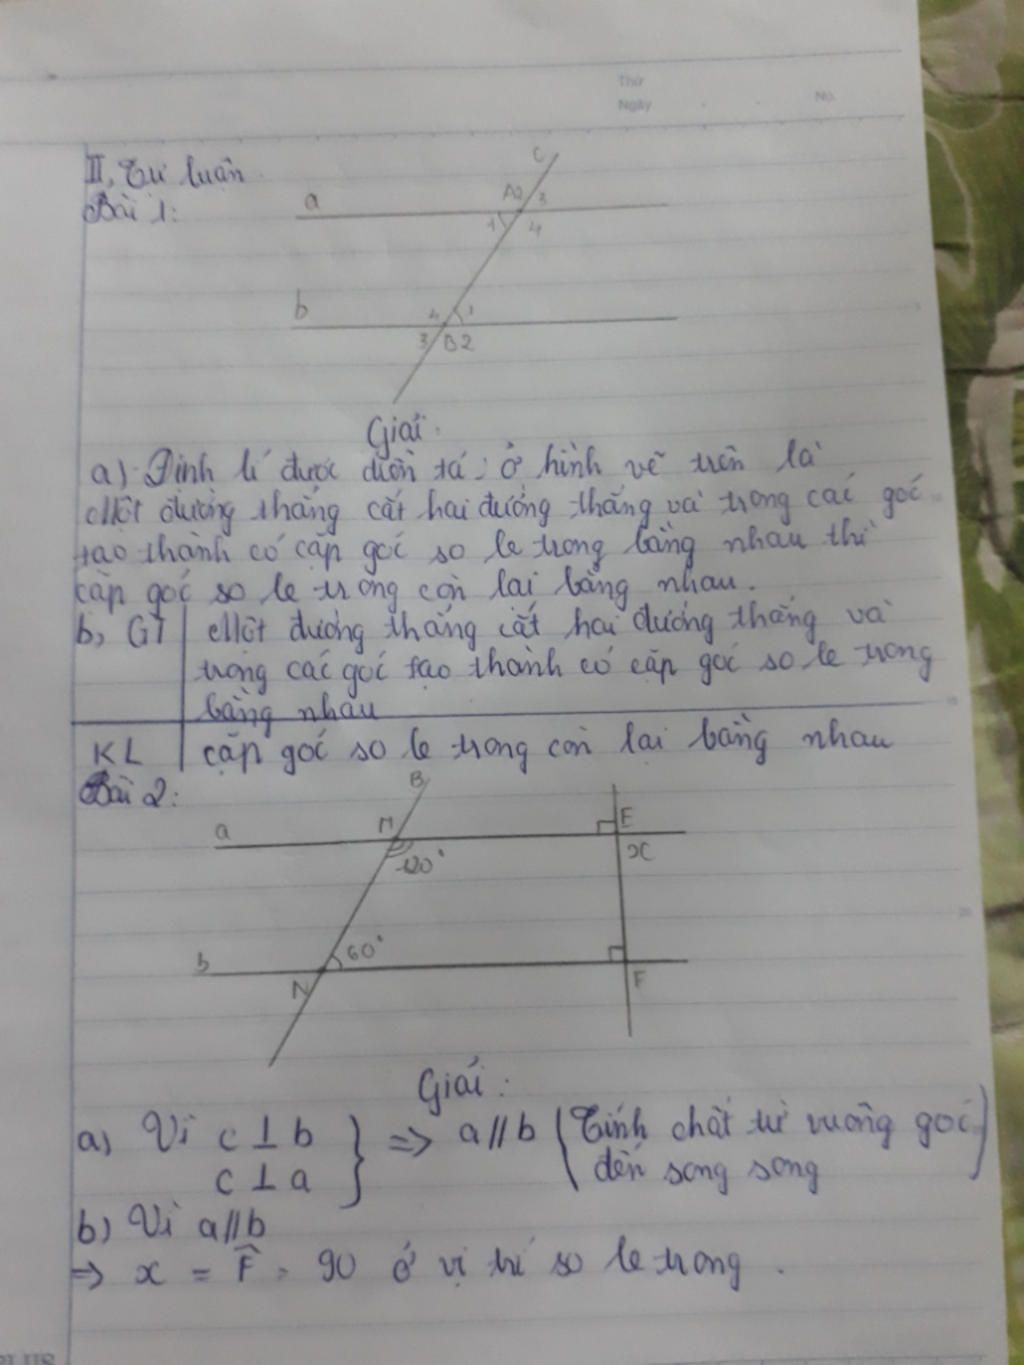 Thứ
Ngày
No.
II, Tự luận
Bài 1:
C
a
A2 3
1 4
b
4 1
3 B2
Giải:
a) Định lí được diễn tả: ở hình vẽ trên là
Một đường thẳng cắt hai đường thẳng và trong các góc
tạo thành có cặp góc so le trong bằng nhau thì
cặp góc so le trong còn lại bằng nhau.
b, GT Một đường thẳng cắt hai đường thẳng và
trong các góc tạo thành có cặp góc so le trong
bằng nhau
KL cặp góc so le trong còn lại bằng nhau
Bài 2:
B
a M E
120° x
b 60°
N F
Giải:
a) Vì c ⊥ b } => a // b ( Tính chất từ vuông góc
c ⊥ a đến song song )
b) Vì a // b
=> x = F̂ = 90 ở vị trí so le trong.